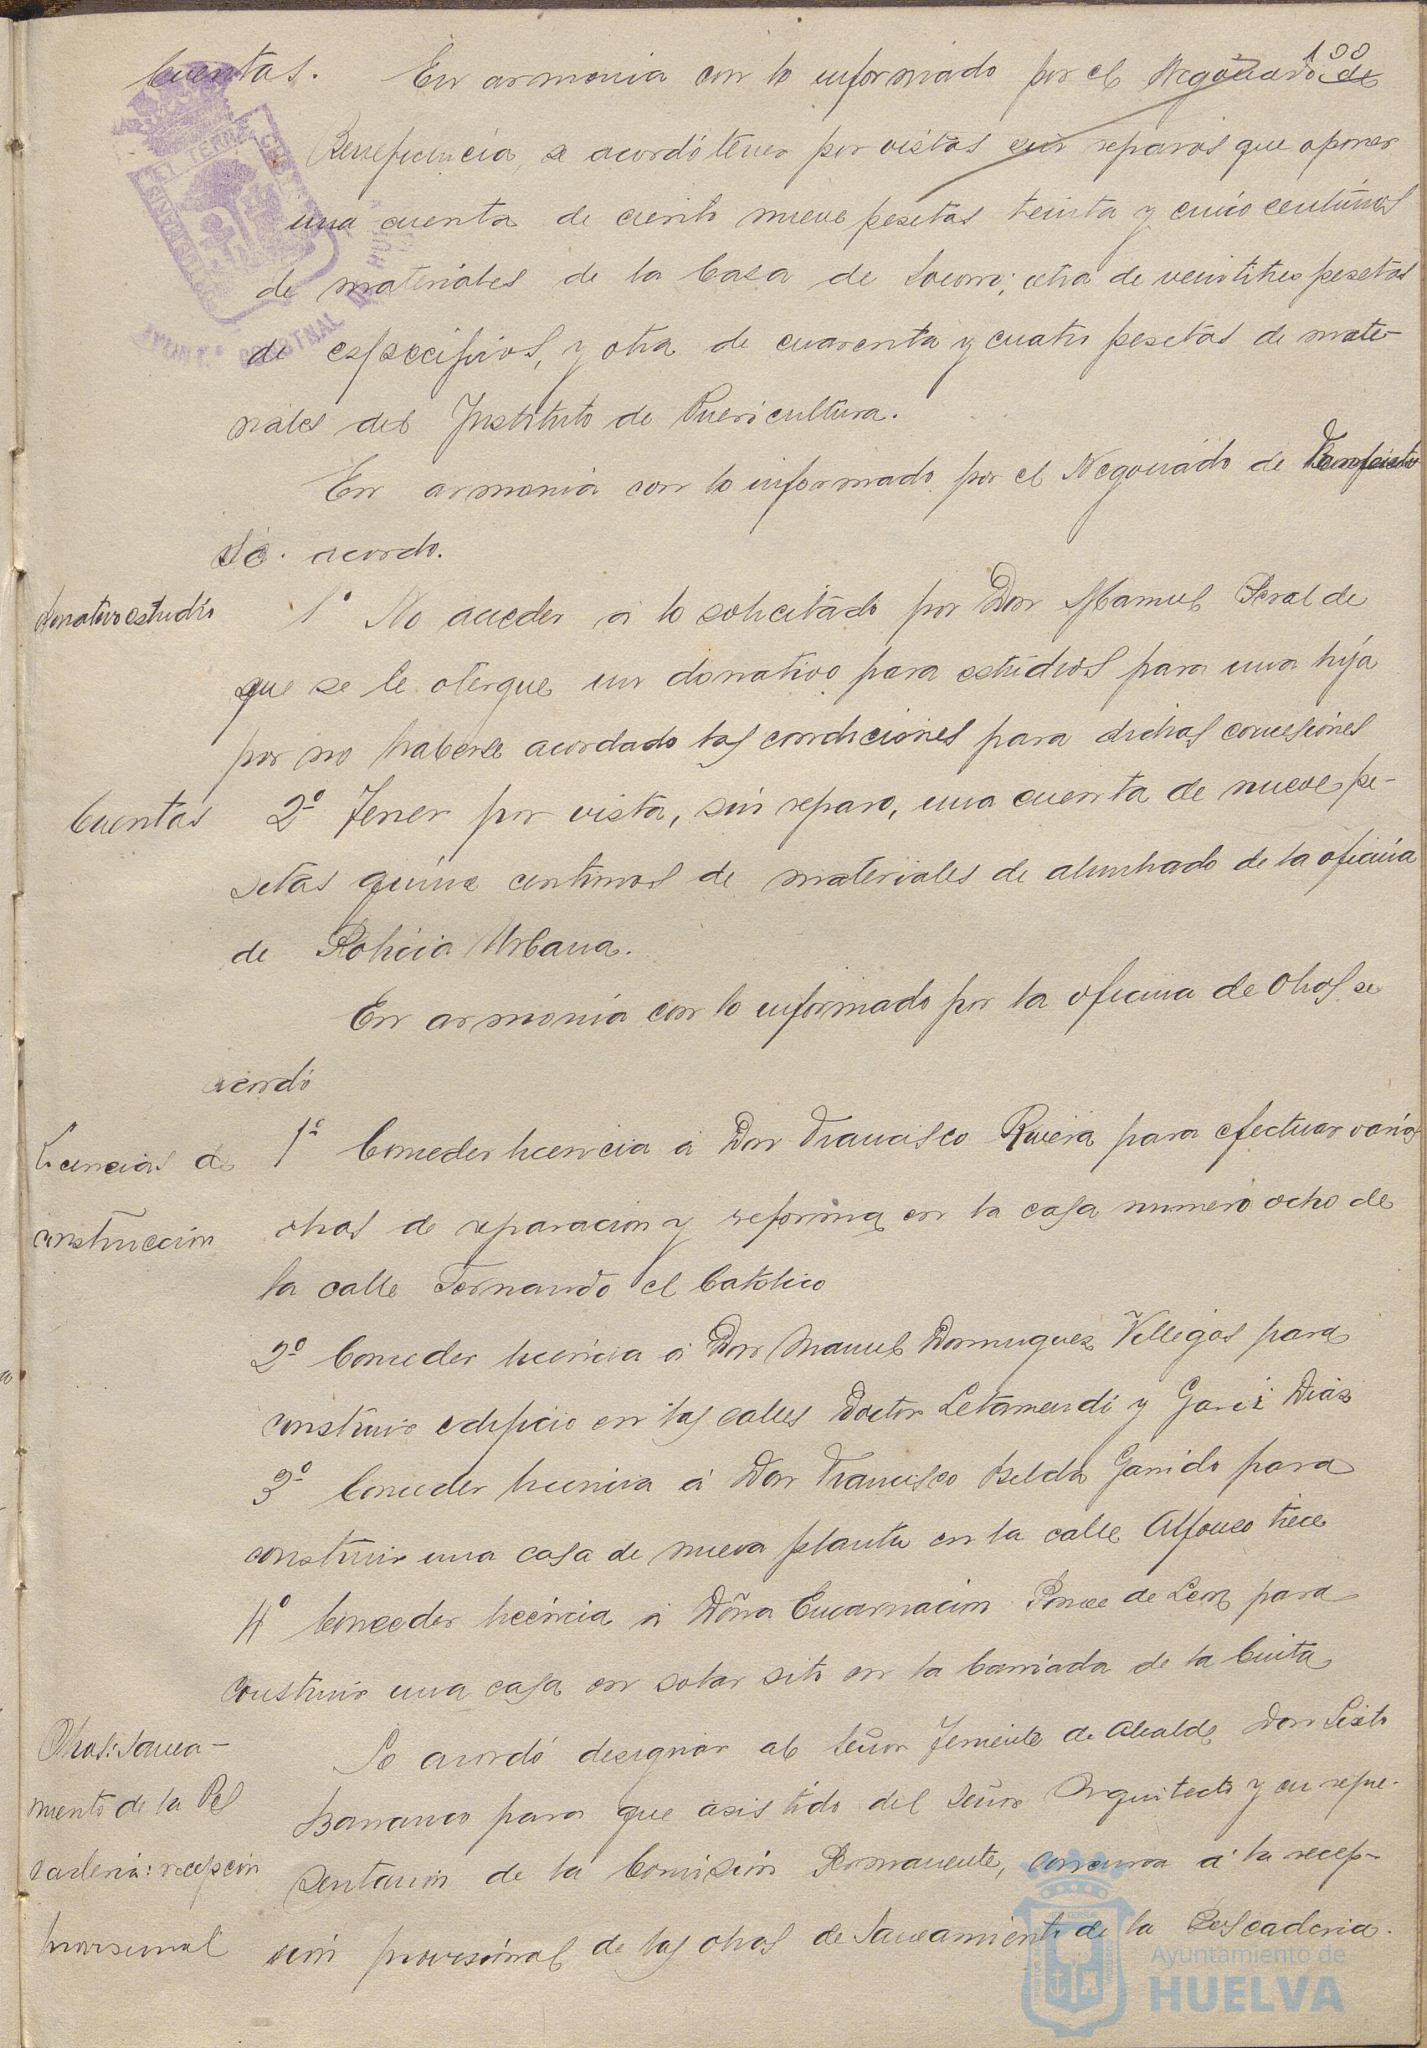 100
Cuentas. En armonia con lo informado por el Negociado de
Beneficencia, se acordó tener por vistas sin reparos que oponer
una cuenta de ciento nueve pesetas treinta y cinco centimos
de materiales de la Casa de Socorro; otra de veintitres pesetas
de especificos, y otra de cuarenta y cuatro pesetas de mate-
riales del Instituto de Puericultura.
En armonia con lo informado por el Negociado de
se acordo.
donativo estudio 1º No acceder a lo solicitado por Don Manuel Peral de
que se le otorgue un donativo para estudios para una hija
por no haberse acordado las condiciones para dichas concesiones
Cuentas 2º Tener por vista, sin reparo, una cuenta de nueve pe-
setas quince centimos de materiales de alumbrado de la oficina
de Policia Urbana.
En armonia con lo informado por la oficina de Obras se
acordó
Licencias de 1º Conceder licencia á Don Francisco Rivera para efectuar varias
construccion obras de reparacion y reforma en la casa numero ocho de
la calle Fernando el Catolico
2º Conceder licencia á Don Manuel Dominguez Villegas para
construir edificio en las calles Doctor Letamendi y Garci Diaz
3º Conceder licencia á Don Francisco Belda Garrido para
construir una casa de nueva planta en la calle Alfonso trece
4º Conceder licencia á Doña Encarnacion Ponce de Leon para
construir una casa en solar sito en la barriada de la Cinta
Obras: Sanea- Se acordó designar al señor Teniente de Alcalde Don Sixto
miento de la Pes Barranco para que asistido del señor Arquitecto y en repre-
caderia: recepcion sentacion de la Comision Permanente, concurra á la recep-
provisional cion provisional de las obras de saneamiento de la Pescaderia.
Ayuntamiento de
HUELVA